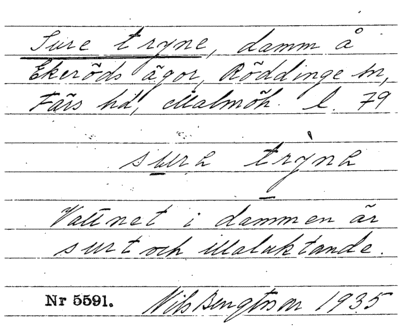 Sure tryne, damm å
Ekeröds ägor, Röddinge sn,
Färs hd, Malmöh. l. 79
sura trỳna
Vattnet i dammen är
surt och illaluktande.
Nr 5591. Nils Bengtsson 1935